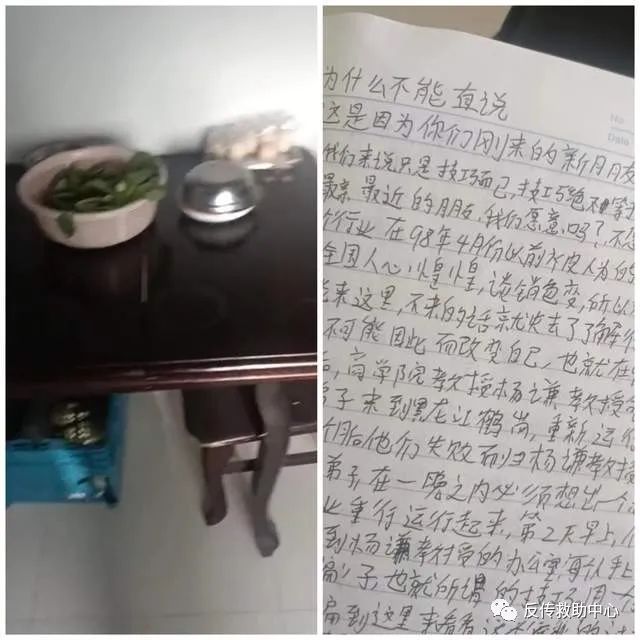 No
Date
为什么不能直说
这是因为你们刚来的新朋友
他们来说只是技巧而已,技巧绝不等于
最亲,最近的朋友,我们愿意吗?不
个行业在98年4月份以前
全国人心惶惶,谈销色变,所以
来这里,不来的话就失去了了解
不可能因此而改变自己,也就在
后,商学院教授杨谦教授
弟子来到黑龙江鹤岗,重新运
个月后他们失败而归杨谦教授
弟子在一晚之内必须想出一个
业重新运行起来,第2天早上,
到杨谦教授的办公室
骗子,也就所谓的技巧,
骗到这里来看看
反传救助中心